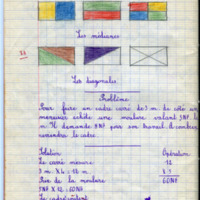 Les médianes
Les diagonales
Problème
Pour faire un cadre carré de 3 m de côté un
menuisier achète une moulure valant 5NF le
m. Il demande 8NF pour son travail. Combien
reviendra le cadre
Solution Opération
Le carré mesure 12
3 m x 4 = 12 m x 5
Prix de la moulure 60NF
5NF x 12 = 60NF
Le cadre revient